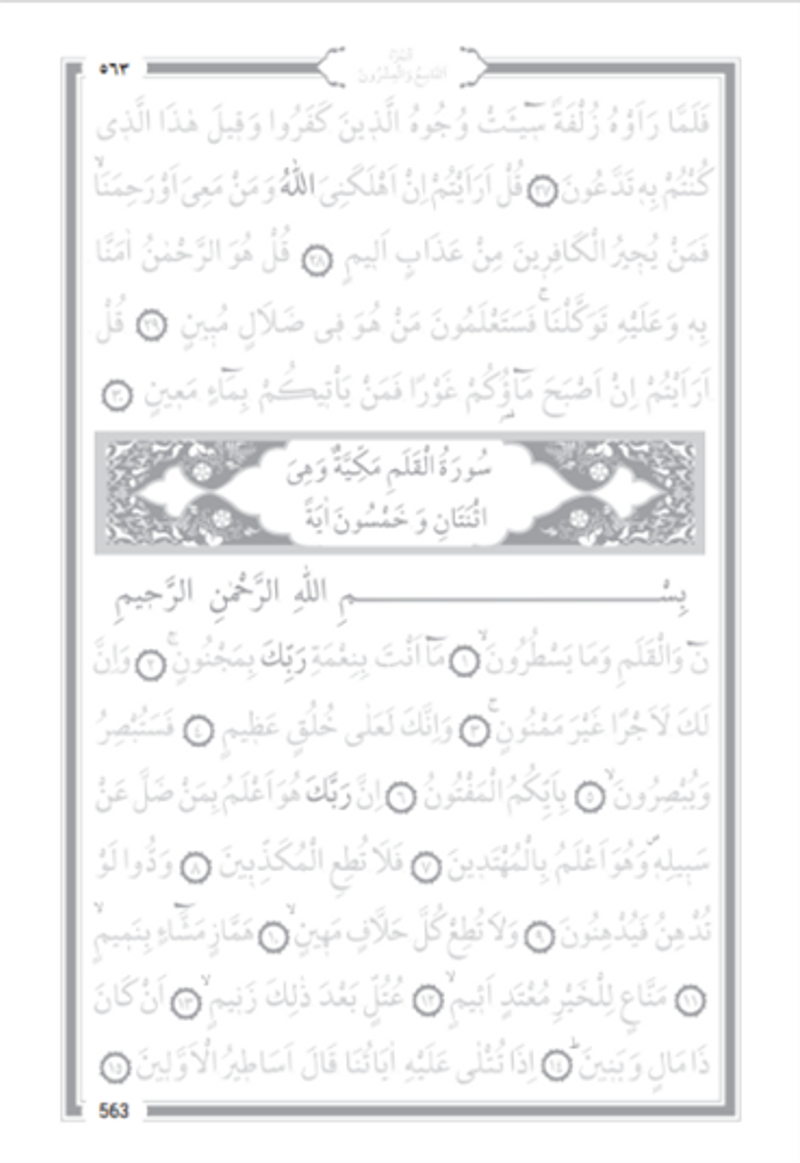 ٥٦٣
الجزء
التاسع والعشرون
فَلَمَّا رَاَوْهُ زُلْفَةً سٓيـَٔتْ وُجُوهُ الَّذٖينَ كَفَرُوا وَقٖيلَ هٰذَا الَّذٖى
كُنْتُمْ بِهٖ تَدَّعُونَ ﴿٢٧﴾ قُلْ اَرَاَيْتُمْ اِنْ اَهْلَكَنِىَ اللّٰهُ وَمَنْ مَعِىَ اَوْ رَحِمَنَاۙ
فَمَنْ يُجٖيرُ الْكَافِرٖينَ مِنْ عَذَابٍ اَلٖيمٍ ﴿٢٨﴾ قُلْ هُوَ الرَّحْمٰنُ اٰمَنَّا
بِهٖ وَعَلَيْهِ تَوَكَّلْنَاۚ فَسَتَعْلَمُونَ مَنْ هُوَ فٖى ضَلَالٍ مُبٖينٍ ﴿٢٩﴾ قُلْ
اَرَاَيْتُمْ اِنْ اَصْبَحَ مَٓاؤُ۬كُمْ غَوْرًا فَمَنْ يَأْتٖيكُمْ بِمَٓاءٍ مَعٖينٍ ﴿٣٠﴾
سُورَةُ الْقَلَمِ مَكِّيَّةٌ وَهِىَ
اثْنَتَانِ وَ خَمْسُونَ اٰيَةً
بِسْمِ اللّٰهِ الرَّحْمٰنِ الرَّحٖيمِ
نٓ وَالْقَلَمِ وَمَا يَسْطُرُونَۙ ﴿١﴾ مَٓا اَنْتَ بِنِعْمَةِ رَبِّكَ بِمَجْنُونٍۚ ﴿٢﴾ وَاِنَّ
لَكَ لَاَجْرًا غَيْرَ مَمْنُونٍۚ ﴿٣﴾ وَاِنَّكَ لَعَلٰى خُلُقٍ عَظٖيمٍ ﴿٤﴾ فَسَتُبْصِرُ
وَيُبْصِرُونَۙ ﴿٥﴾ بِاَيِّكُمُ الْمَفْتُونُ ﴿٦﴾ اِنَّ رَبَّكَ هُوَ اَعْلَمُ بِمَنْ ضَلَّ عَنْ
سَبٖيلِهٖۖ وَهُوَ اَعْلَمُ بِالْمُهْتَدٖينَ ﴿٧﴾ فَلَا تُطِعِ الْمُكَذِّبٖينَ ﴿٨﴾ وَدُّوا لَوْ
تُدْهِنُ فَيُدْهِنُونَ ﴿٩﴾ وَلَا تُطِعْ كُلَّ حَلَّافٍ مَهٖينٍۙ ﴿١٠﴾ هَمَّازٍ مَشَّٓاءٍ بِنَمٖيمٍۙ
﴿١١﴾ مَنَّاعٍ لِلْخَيْرِ مُعْتَدٍ اَثٖيمٍۙ ﴿١٢﴾ عُتُلٍّ بَعْدَ ذٰلِكَ زَنٖيمٍۙ ﴿١٣﴾ اَنْ كَانَ
ذَا مَالٍ وَبَنٖينَؕ ﴿١٤﴾ اِذَا تُتْلٰى عَلَيْهِ اٰيَاتُنَا قَالَ اَسَاطٖيرُ الْاَوَّلٖينَ ﴿١٥﴾
563